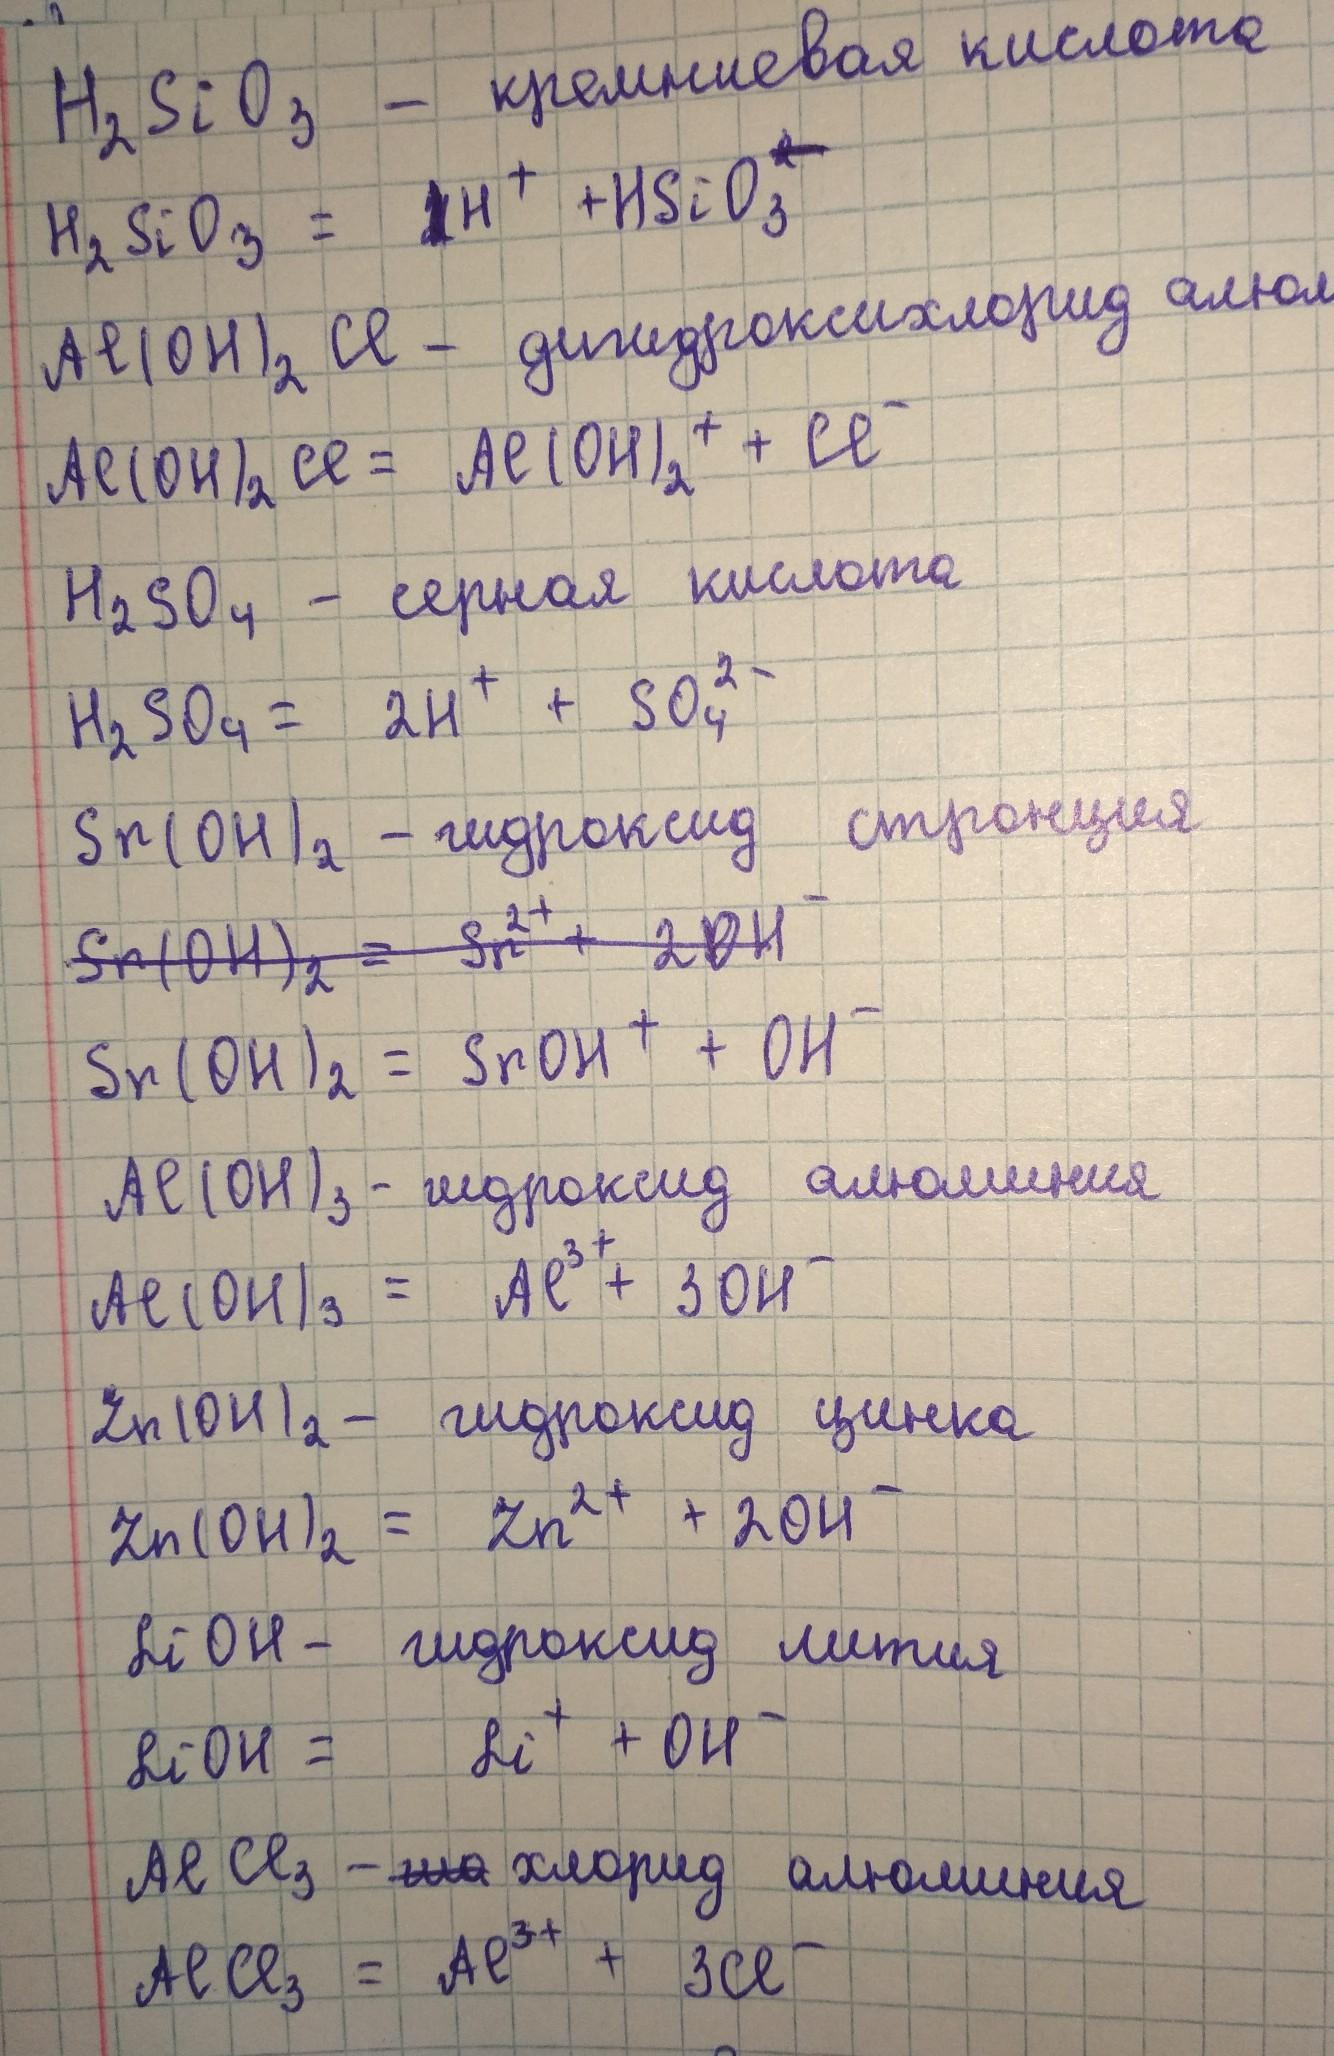 H₂SiO₃ – кремниевая кислота
H₂SiO₃ = H⁺ + HSiO₃⁻
Al(OH)₂Cl – дигидроксихлорид алюм
Al(OH)₂Cl = Al(OH)₂⁺ + Cl⁻
H₂SO₄ – серная кислота
H₂SO₄ = 2H⁺ + SO₄²⁻
Sr(OH)₂ – гидроксид стронция
Sr(OH)₂ = Sr²⁺ + 2OH⁻
Sr(OH)₂ = SrOH⁺ + OH⁻
Al(OH)₃ – гидроксид алюминия
Al(OH)₃ = Al³⁺ + 3OH⁻
Zn(OH)₂ – гидроксид цинка
Zn(OH)₂ = Zn²⁺ + 2OH⁻
LiOH – гидроксид лития
LiOH = Li⁺ + OH⁻
AlCl₃ – хлорид алюминия
AlCl₃ = Al³⁺ + 3Cl⁻